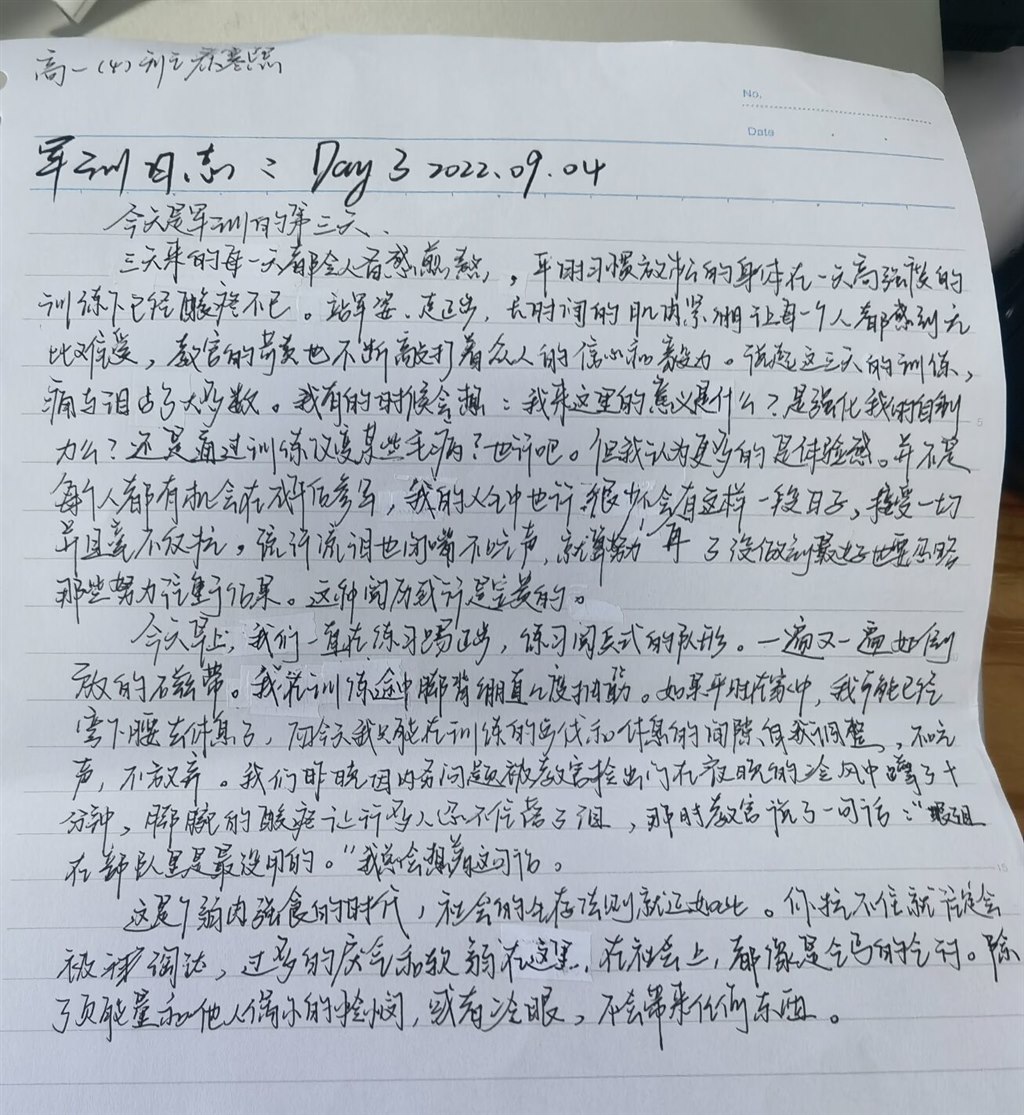 高一(4)
No.
Date
军训日志：Day 3 2022.09.04
今天是军训的第三天、
三天来的每一天都令人倍感煎熬，平时习惯放松的身体在一天高强度的
训练下已经酸疼不已。站军姿、走正步，长时间的肌肉紧绷让每一个人都感到无
比难受，教官的苛责也不断敲打着众人的信心和毅力。说起这三天的训练，
痛与泪占了大多数。我有的时候会想：我来这里的意义是什么？是强化我的自制
力么？还是通过训练改变某些毛病？也许吧。但我认为更多的是体验感。并不是
每个人都有机会在，我的人生中也许很少会有这样一段日子，接受一切
并且毫不反抗。流泪也闭嘴不吭声，就算努力了没做到最好也要忍
那些努力注重结果。这种阅历或许是宝贵的。
今天早上，我们一直在练习踢正步，练习阅兵式的队形。一遍又一遍如倒
放的磁带。我在训练途中脚背绷直几度抽筋。如果平时在家中，我可能已经
弯下腰去休息了，而今天我只能在训练的步伐和休息的间隙自我调整，不吭
声，不放弃。我们昨晚因内务问题被教官拎出门在夜晚的冷风中蹲了十
分钟，脚腕的酸疼让许多人忍不住落了泪，那时教官说了一句话：“眼泪
在部队里是最没用的。”我总会想着这句话。
这是个弱肉强食的时代，社会的生存法则就还如此。你撑不住就注定会
被淘汰，过多的和软弱在这里，在社会上，都像是。除
了负能量和他人偶尔的怜悯，或者冷眼，不会带来任何东西。
5
10
15